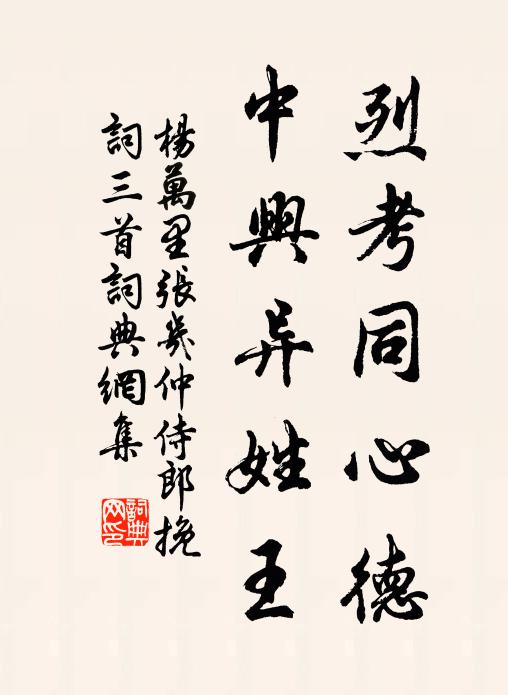 烈考同心德
中興异姓王
楊萬里張幾仲侍郎挽
詞三首詞典網集
詞典网印